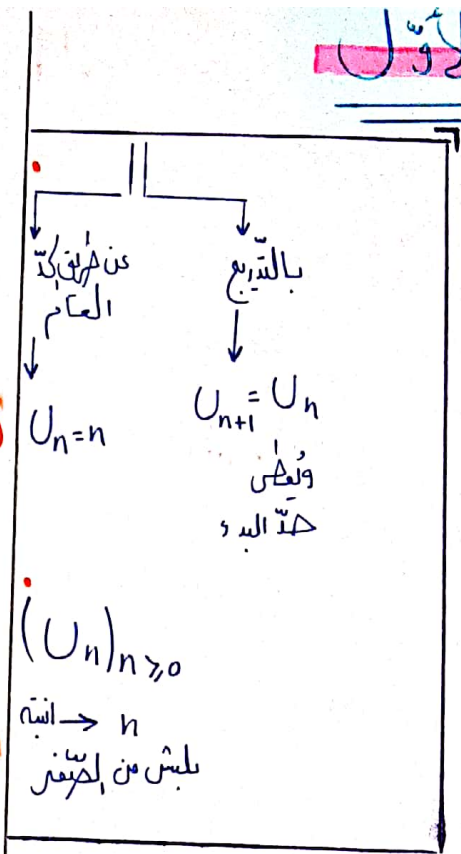 الأوّل
بالتّدريج
U_{n+1} = U_n
ويُعطى
حدّ البدء
عن طريق الحدّ
العام
U_n = n
(U_n)_{n≥0}
انتبه → n
بلش من الصّفر